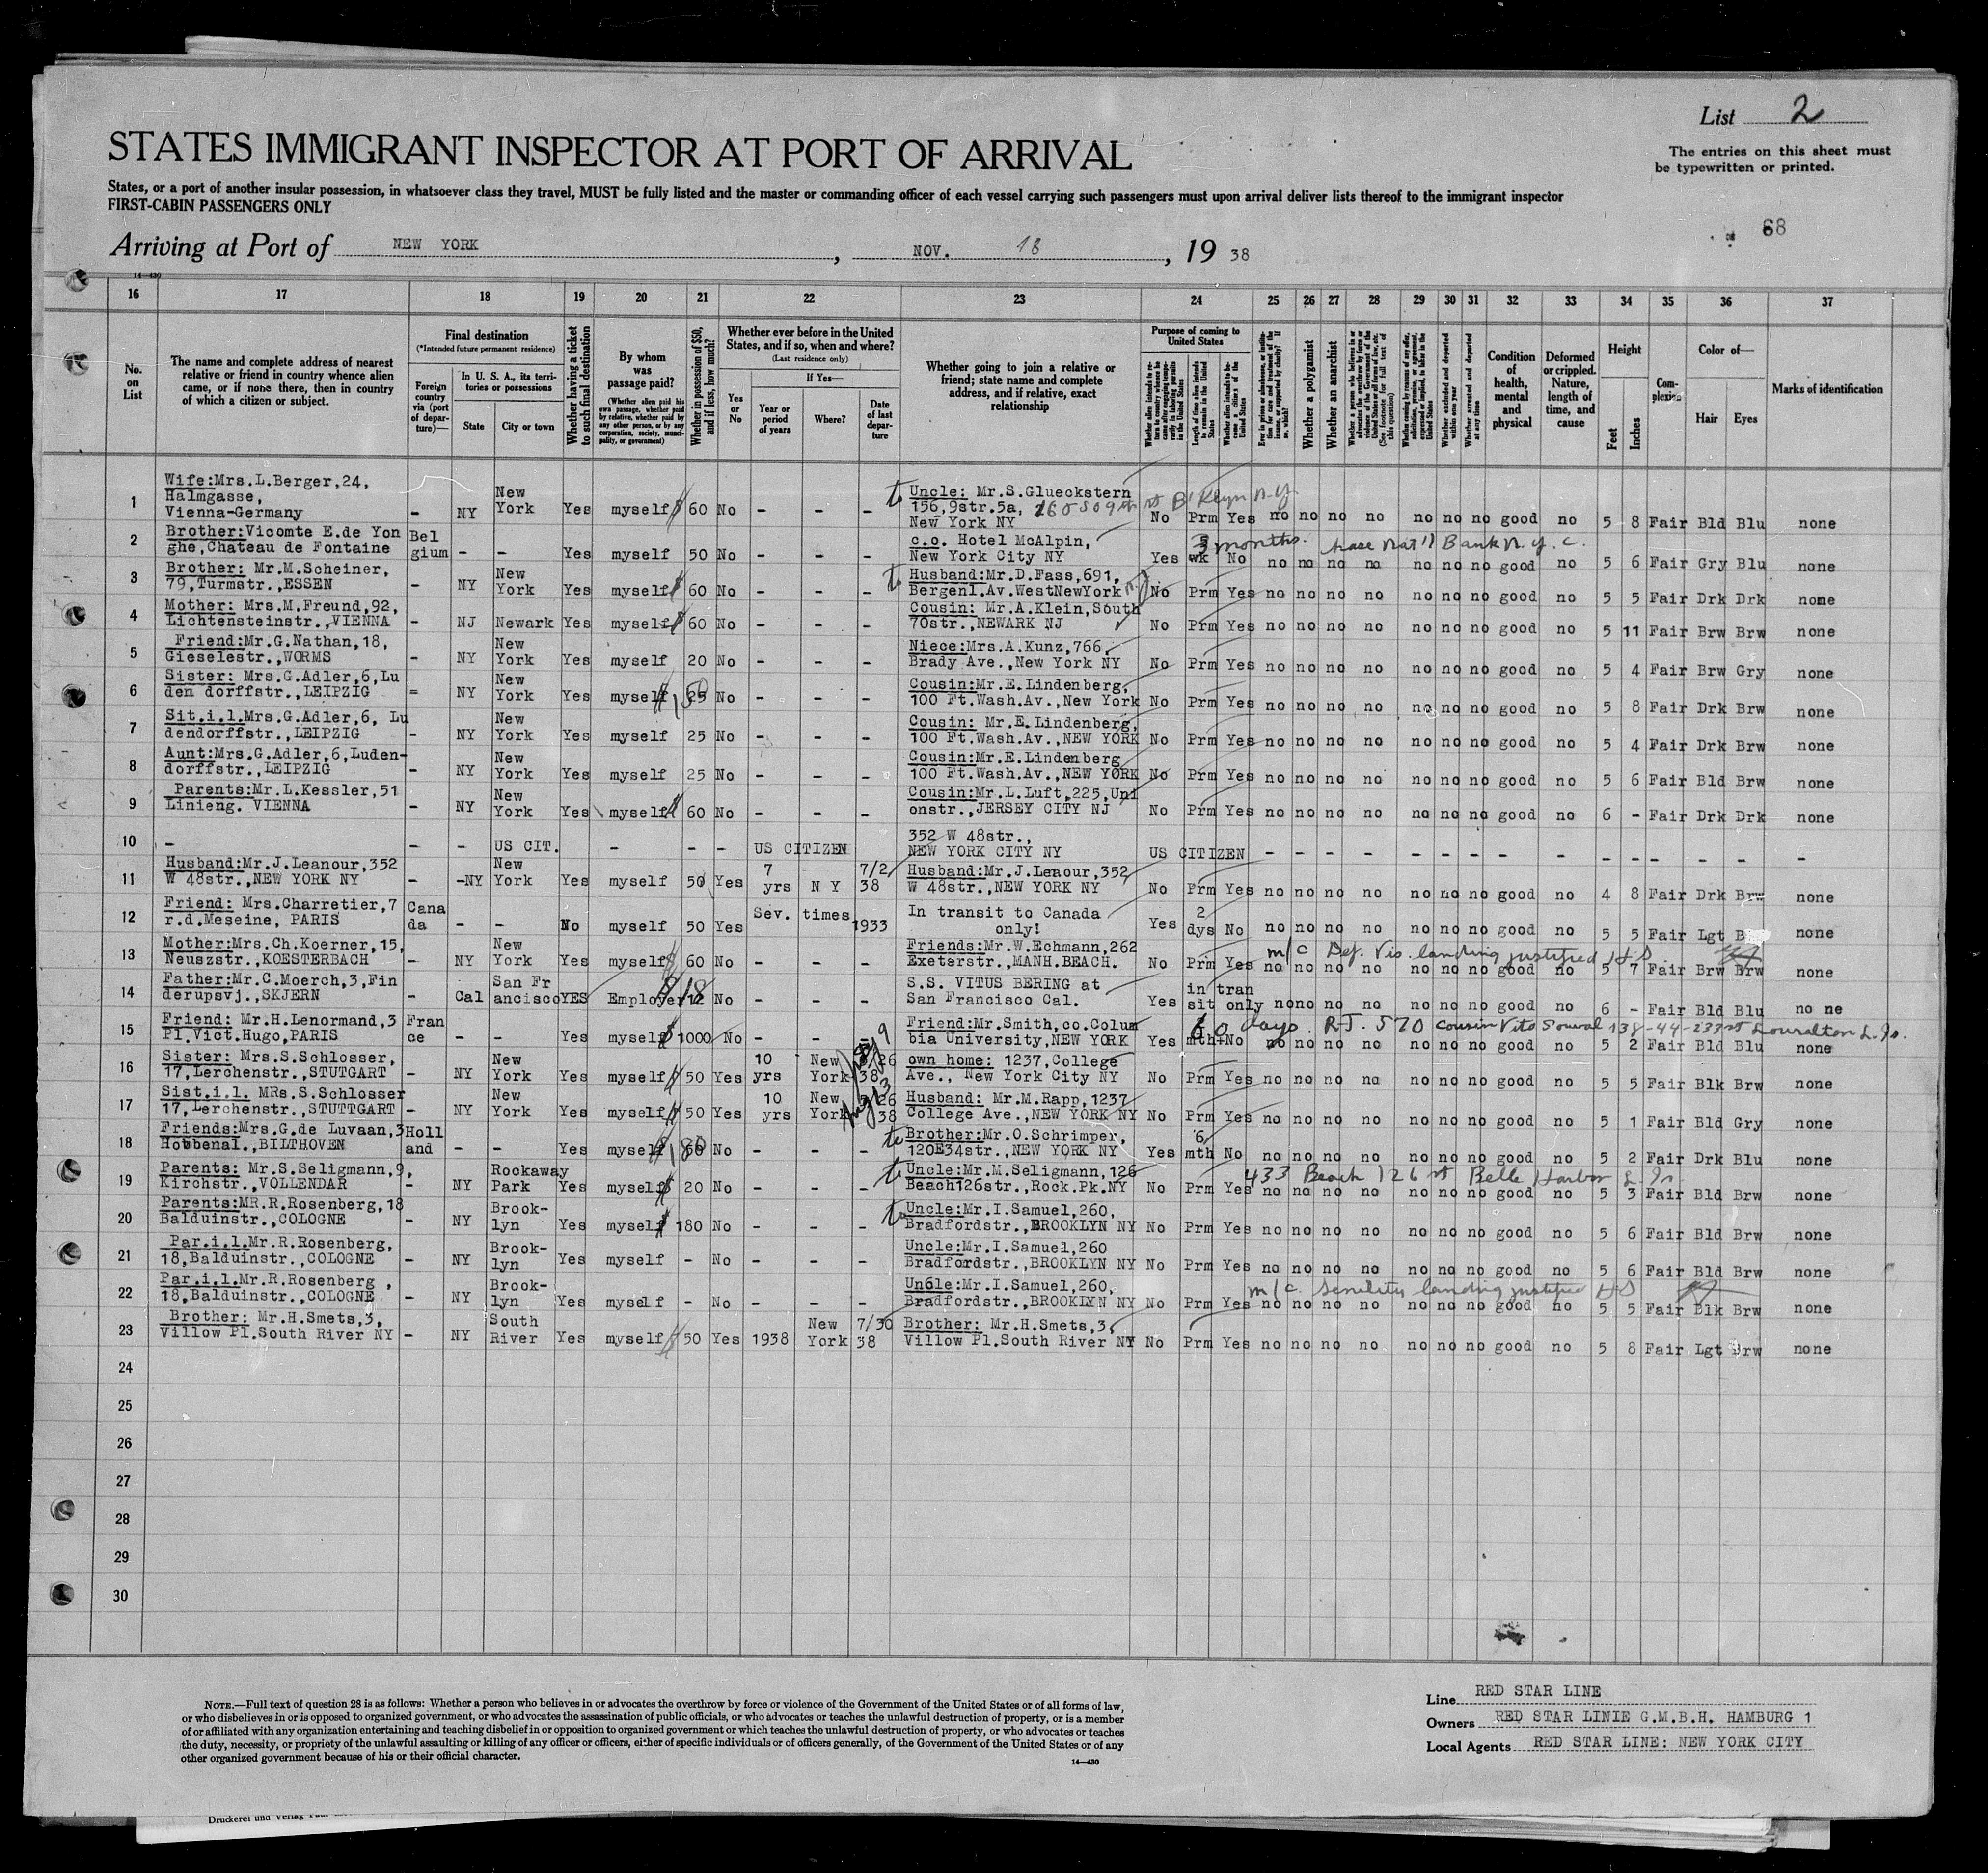 List 2
STATES IMMIGRANT INSPECTOR AT PORT OF ARRIVAL
The entries on this sheet must
be typewritten or printed.
States, or a port of another insular possession, in whatsoever class they travel, MUST be fully listed and the master or commanding officer of each vessel carrying such passengers must upon arrival deliver lists thereof to the immigrant inspector
FIRST-CABIN PASSENGERS ONLY
68
Arriving at Port of NEW YORK, NOV. 18, 19 38
14—430
16 17 18 19 20 21 22 23 24 25 26 27 28 29 30 31 32 33 34 35 36 37
No. on List
The name and complete address of nearest relative or friend in country whence alien came, or if none there, then in country of which a citizen or subject.
Final destination
(*Intended future permanent residence)
Foreign country via (port of departure)—
In U. S. A., its territories or possessions
State City or town
Whether having a ticket to such final destination
By whom was passage paid?
(Whether alien paid his own passage, whether paid by relative, whether paid by any other person, or by any corporation, society, municipality, or government)
Whether in possession of $50, and if less, how much?
Whether ever before in the United States, and if so, when and where?
(Last residence only)
Yes or No
If Yes—
Year or period of years
Where?
Date of last departure
Whether going to join a relative or friend; state name and complete address, and if relative, exact relationship
Purpose of coming to United States
Length of time alien intends to remain in the United States
Whether alien intends to become a citizen of the United States
Whether a polygamist
Whether an anarchist
Condition of health, mental and physical
Deformed or crippled. Nature, length of time, and cause
Height
Feet Inches
Complexion
Color of—
Hair Eyes
Marks of identification
1 Wife:Mrs.L.Berger,24, Halmgasse, Vienna-Germany - NY New York Yes myself $ 60 No - - - to Uncle: Mr.S.Glueckstern 156,9str.5a, New York NY B'klyn N.Y. No Prm Yes no no no no no no no good no 5 8 Fair Bld Blu none
2 Brother:Vicomte E.de Yon ghe,Chateau de Fontaine Bel gium - - Yes myself 50 No - - - c.o. Hotel McAlpin, New York City NY Yes wk No 3 months. Chase Nat'l Bank N.Y.C. no no no no no no no good no 5 6 Fair Gry Blu none
3 Brother: Mr.M.Scheiner, 79,Turmstr.,ESSEN - NY New York Yes myself $ 60 No - - - to Husband:Mr.D.Fass,691, Bergenl.Av.WestNewYork NJ No Prm Yes no no no no no no no good no 5 5 Fair Drk Drk none
4 Mother: Mrs.M.Freund,92, Lichtensteinstr.,VIENNA - NJ Newark Yes myself $ 60 No - - - Cousin: Mr.A.Klein,South 70str.,NEWARK NJ No Prm Yes no no no no no no no good no 5 11 Fair Brw Brw none
5 Friend:Mr.G.Nathan,18, Gieselestr.,WORMS - NY New York Yes myself 20 No - - - Niece:Mrs.A.Kunz,766, Brady Ave.,New York NY No Prm Yes no no no no no no no good no 5 4 Fair Brw Gry none
6 Sister: Mrs.G.Adler,6,Lu den dorffstr.,LEIPZIG = NY New York Yes myself $150 25 No - - - Cousin:Mr.E.Lindenberg, 100 Ft.Wash.Av.,New York No Prm Yes no no no no no no no good no 5 8 Fair Drk Brw none
7 Sit.i.l.Mrs.G.Adler,6, Lu dendorffstr.,LEIPZIG - NY New York Yes myself 25 No - - - Cousin: Mr.E.Lindenberg, 100 Ft.Wash.Av.,NEW YORK No Prm Yes no no no no no no no good no 5 4 Fair Drk Brw none
8 Aunt:Mrs.G.Adler,6,Luden- dorffstr.,LEIPZIG - NY New York Yes myself 25 No - - - Cousin:Mr.E.Lindenberg 100 Ft.Wash.Av.,NEW YORK No Prm Yes no no no no no no no good no 5 6 Fair Bld Brw none
9 Parents:Mr.L.Kessler,51 Linieng. VIENNA - NY New York Yes myself $ 60 No - - - Cousin:Mr.L.Luft,225,Uni onstr.,JERSEY CITY NJ No Prm Yes no no no no no no no good no 6 - Fair Drk Drk none
10 - - - US CIT. - - - US CITIZEN 352 W 48str., NEW YORK CITY NY US CITIZEN - - - - - - - - - - - - - - -
11 Husband:Mr.J.Leanour,352 W 48str.,NEW YORK NY - -NY New York Yes myself 50 Yes 7 yrs N Y 7/2/ 38 Husband:Mr.J.Lenour,352 W 48str.,NEW YORK NY No Prm Yes no no no no no no no good no 4 8 Fair Drk Brw none
12 Friend: Mrs.Charretier,7 r.d.Meseine, PARIS Cana da - - No myself 50 Yes Sev. times 1933 In transit to Canada only! Yes 2 dys No no no no no no no no good no 5 5 Fair Lgt none
13 Mother:Mrs.Ch.Koerner,15, Neuszstr.,KOESTERBACH - NY New York Yes myself $ 60 No - - - Friends:Mr.W.Echmann,262 Exeterstr.,MANH.BEACH. No Prm Yes m/c Def. Vis. landing justified HS no no no no no no no good no 5 7 Fair Brw Brw none
14 Father:Mr.C.Moerch,3,Fin derupsvj.,SKJERN - Cal San Fr ancisco YES Employer $18 12 No - - - S.S. VITUS BERING at San Francisco Cal. Yes in tran sit only no no no no no no no good no 6 - Fair Bld Blu no ne
15 Friend: Mr.H.Lenormand,3 Pl.Vict.Hugo,PARIS Fran ce - - Yes myself $ 1000 No - - - Friend:Mr.Smith,co.Colum bia University,NEW YORK Yes mth No 60 days. R.J. 570 cousin Vito 138-44-233 st L.Is. no no no no no no no good no 5 2 Fair Bld Blu none
16 Sister: Mrs.S.Schlosser, 17,Lerchenstr.,STUTGART - NY New York Yes myself $ 50 Yes 10 yrs New York 38 own home: 1237,College Ave., New York City NY No Prm Yes no no no no no no no good no 5 5 Fair Blk Brw none
17 Sist.i.l. MRs.S.Schlosser 17,Lerchenstr.,STUTTGART - NY New York Yes myself $ 50 Yes 10 yrs New York 38 Husband: Mr.M.Rapp,1237 College Ave.,NEW YORK NY No Prm Yes no no no no no no no good no 5 1 Fair Bld Gry none
18 Friends:Mrs.G.de Luvaan,3 Hobbenal.,BILTHOVEN Holl and - - Yes myself $180 No - - - to Brother:Mr.O.Schrimper, 120E34str.,NEW YORK NY Yes 6 mth No no no no no no no no good no 5 2 Fair Drk Blu none
19 Parents: Mr.S.Seligmann,9, Kirchstr.,VOLLENDAR - NY Rockaway Park Yes myself $ 20 No - - - to Uncle:Mr.M.Seligmann,126 Beach126str.,Rock.Pk.NY No Prm Yes 433 Beach 126 st Belle Harbor L.Is. no no no no no no no good no 5 3 Fair Bld Brw none
20 Parents:MR.R.Rosenberg,18 Balduinstr.,COLOGNE - NY Brook- lyn Yes myself $ 180 No - - - to Uncle:Mr.I.Samuel,260, Bradfordstr.,BROOKLYN NY No Prm Yes no no no no no no no good no 5 6 Fair Bld Brw none
21 Par.i.l.Mr.R.Rosenberg, 18,Balduinstr.,COLOGNE - NY Brook- lyn Yes myself - No - - - Uncle:Mr.I.Samuel,260 Bradfordstr.,BROOKLYN NY No Prm Yes no no no no no no no good no 5 6 Fair Bld Brw none
22 Par.i.l.Mr.R.Rosenberg , 18,Balduinstr.,COLOGNE - NY Brook- lyn Yes myself - No - - - Unóle:Mr.I.Samuel,260, Bradfordstr.,BROOKLYN NY No Prm Yes m/c. Senility landing justified HS no no no no no no no good no 5 5 Fair Blk Brw none
23 Brother: Mr.H.Smets,3, Villow Pl.South River NY - NY South River Yes myself $ 50 Yes 1938 New York 7/30 38 Brother: Mr.H.Smets,3, Villow Pl.South River NY No Prm Yes no no no no no no no good no 5 8 Fair Lgt Brw none
24
25
26
27
28
29
30
NOTE.—Full text of question 28 is as follows: Whether a person who believes in or advocates the overthrow by force or violence of the Government of the United States or of all forms of law,
or who disbelieves in or is opposed to organized government, or who advocates the assassination of public officials, or who advocates or teaches the unlawful destruction of property, or is a member
of or affiliated with any organization entertaining and teaching disbelief in or opposition to organized government or which teaches the unlawful destruction of property, or who advocates or teaches
the duty, necessity, or propriety of the unlawful assaulting or killing of any officer or officers, either of specific individuals or of officers generally, of the Government of the United States or of any
other organized government because of his or their official character.
14—430
Line RED STAR LINE
Owners RED STAR LINIE G.M.B.H. HAMBURG 1
Local Agents RED STAR LINE: NEW YORK CITY
Druckerei und Verlag